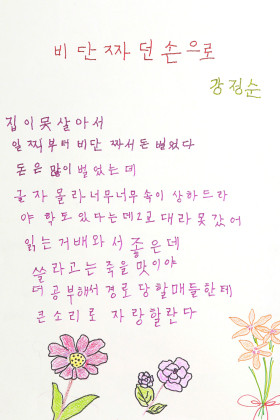 비단짜던손으로
강정순
집이못살아서
일찍부터 비단 짜서돈 벌었다
돈은많이벌었는데
글자몰라너무너무속이상하드라
야학도있다는데2교대라못갔어
읽는거배와서좋은데
쓸라고는죽을맛이야
더공부해서경로당할매들한테
큰소리로 자랑할란다